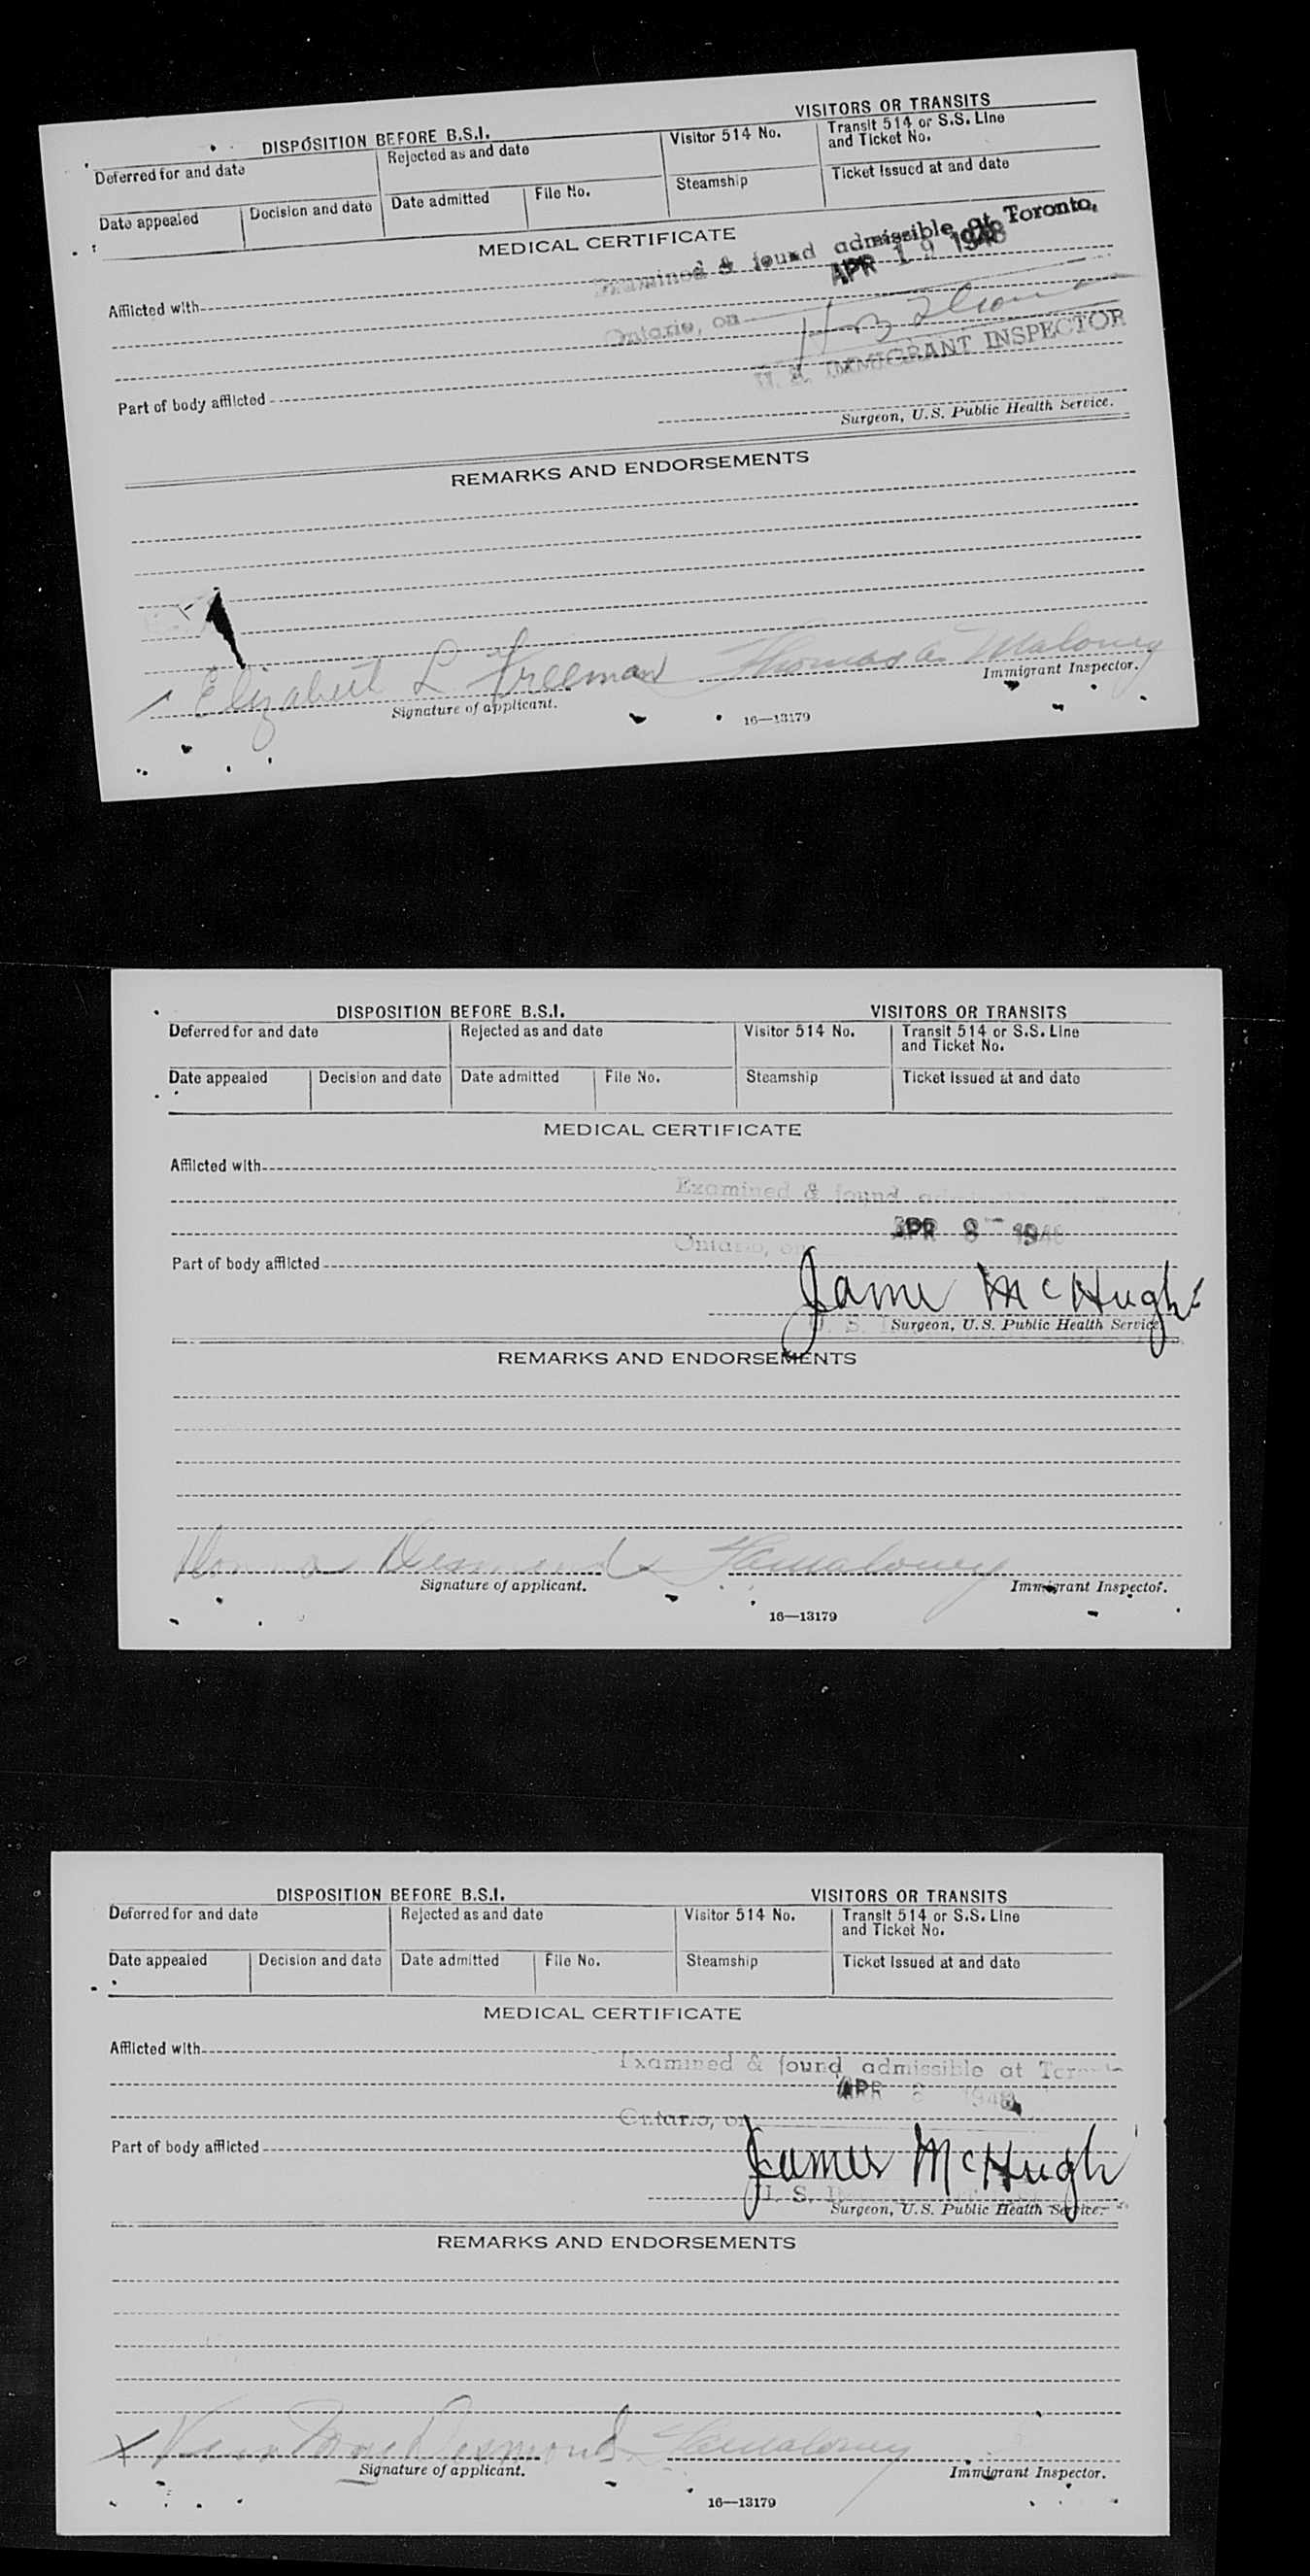 DISPOSITION BEFORE B.S.I. VISITORS OR TRANSITS
Deferred for and date Rejected as and date Visitor 514 No. Transit 514 or S.S. Line and Ticket No.
Date appealed Decision and date Date admitted File No. Steamship Ticket Issued at and date
MEDICAL CERTIFICATE
Examined & found admissible at Toronto,
Afflicted with
APR 19 1948
Ontario, on
U. S. IMMIGRANT INSPECTOR
Part of body afflicted
Surgeon, U.S. Public Health Service.
REMARKS AND ENDORSEMENTS
Elizabeth L Freeman Thomas A. Maloney
Signature of applicant. Immigrant Inspector.
16—13179
DISPOSITION BEFORE B.S.I. VISITORS OR TRANSITS
Deferred for and date Rejected as and date Visitor 514 No. Transit 514 or S.S. Line and Ticket No.
Date appealed Decision and date Date admitted File No. Steamship Ticket Issued at and date
MEDICAL CERTIFICATE
Afflicted with
Examined & found
APR 8 - 1948
Ontario, on
Part of body afflicted
James McHugh
U. S.
Surgeon, U.S. Public Health Service.
REMARKS AND ENDORSEMENTS
Desmond Maloney
Signature of applicant. Immigrant Inspector.
16—13179
DISPOSITION BEFORE B.S.I. VISITORS OR TRANSITS
Deferred for and date Rejected as and date Visitor 514 No. Transit 514 or S.S. Line and Ticket No.
Date appealed Decision and date Date admitted File No. Steamship Ticket Issued at and date
MEDICAL CERTIFICATE
Afflicted with
Examined & found admissible at Toronto
APR 8 1948
Ontario, on
Part of body afflicted
James McHugh
U. S.
Surgeon, U.S. Public Health Service.
REMARKS AND ENDORSEMENTS
Desmond Maloney
Signature of applicant. Immigrant Inspector.
16—13179